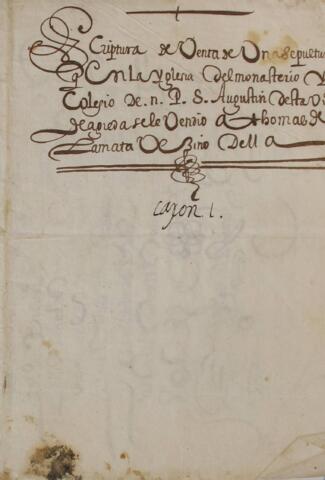 Scriptura de Venta de Una sepultu
q EN la yglesia del monasterio y
Colegio de. n. P. S. Augustin desta V
de agreda se le Vendio a Thomas de
Lamata Vezino Della
caxon 1.